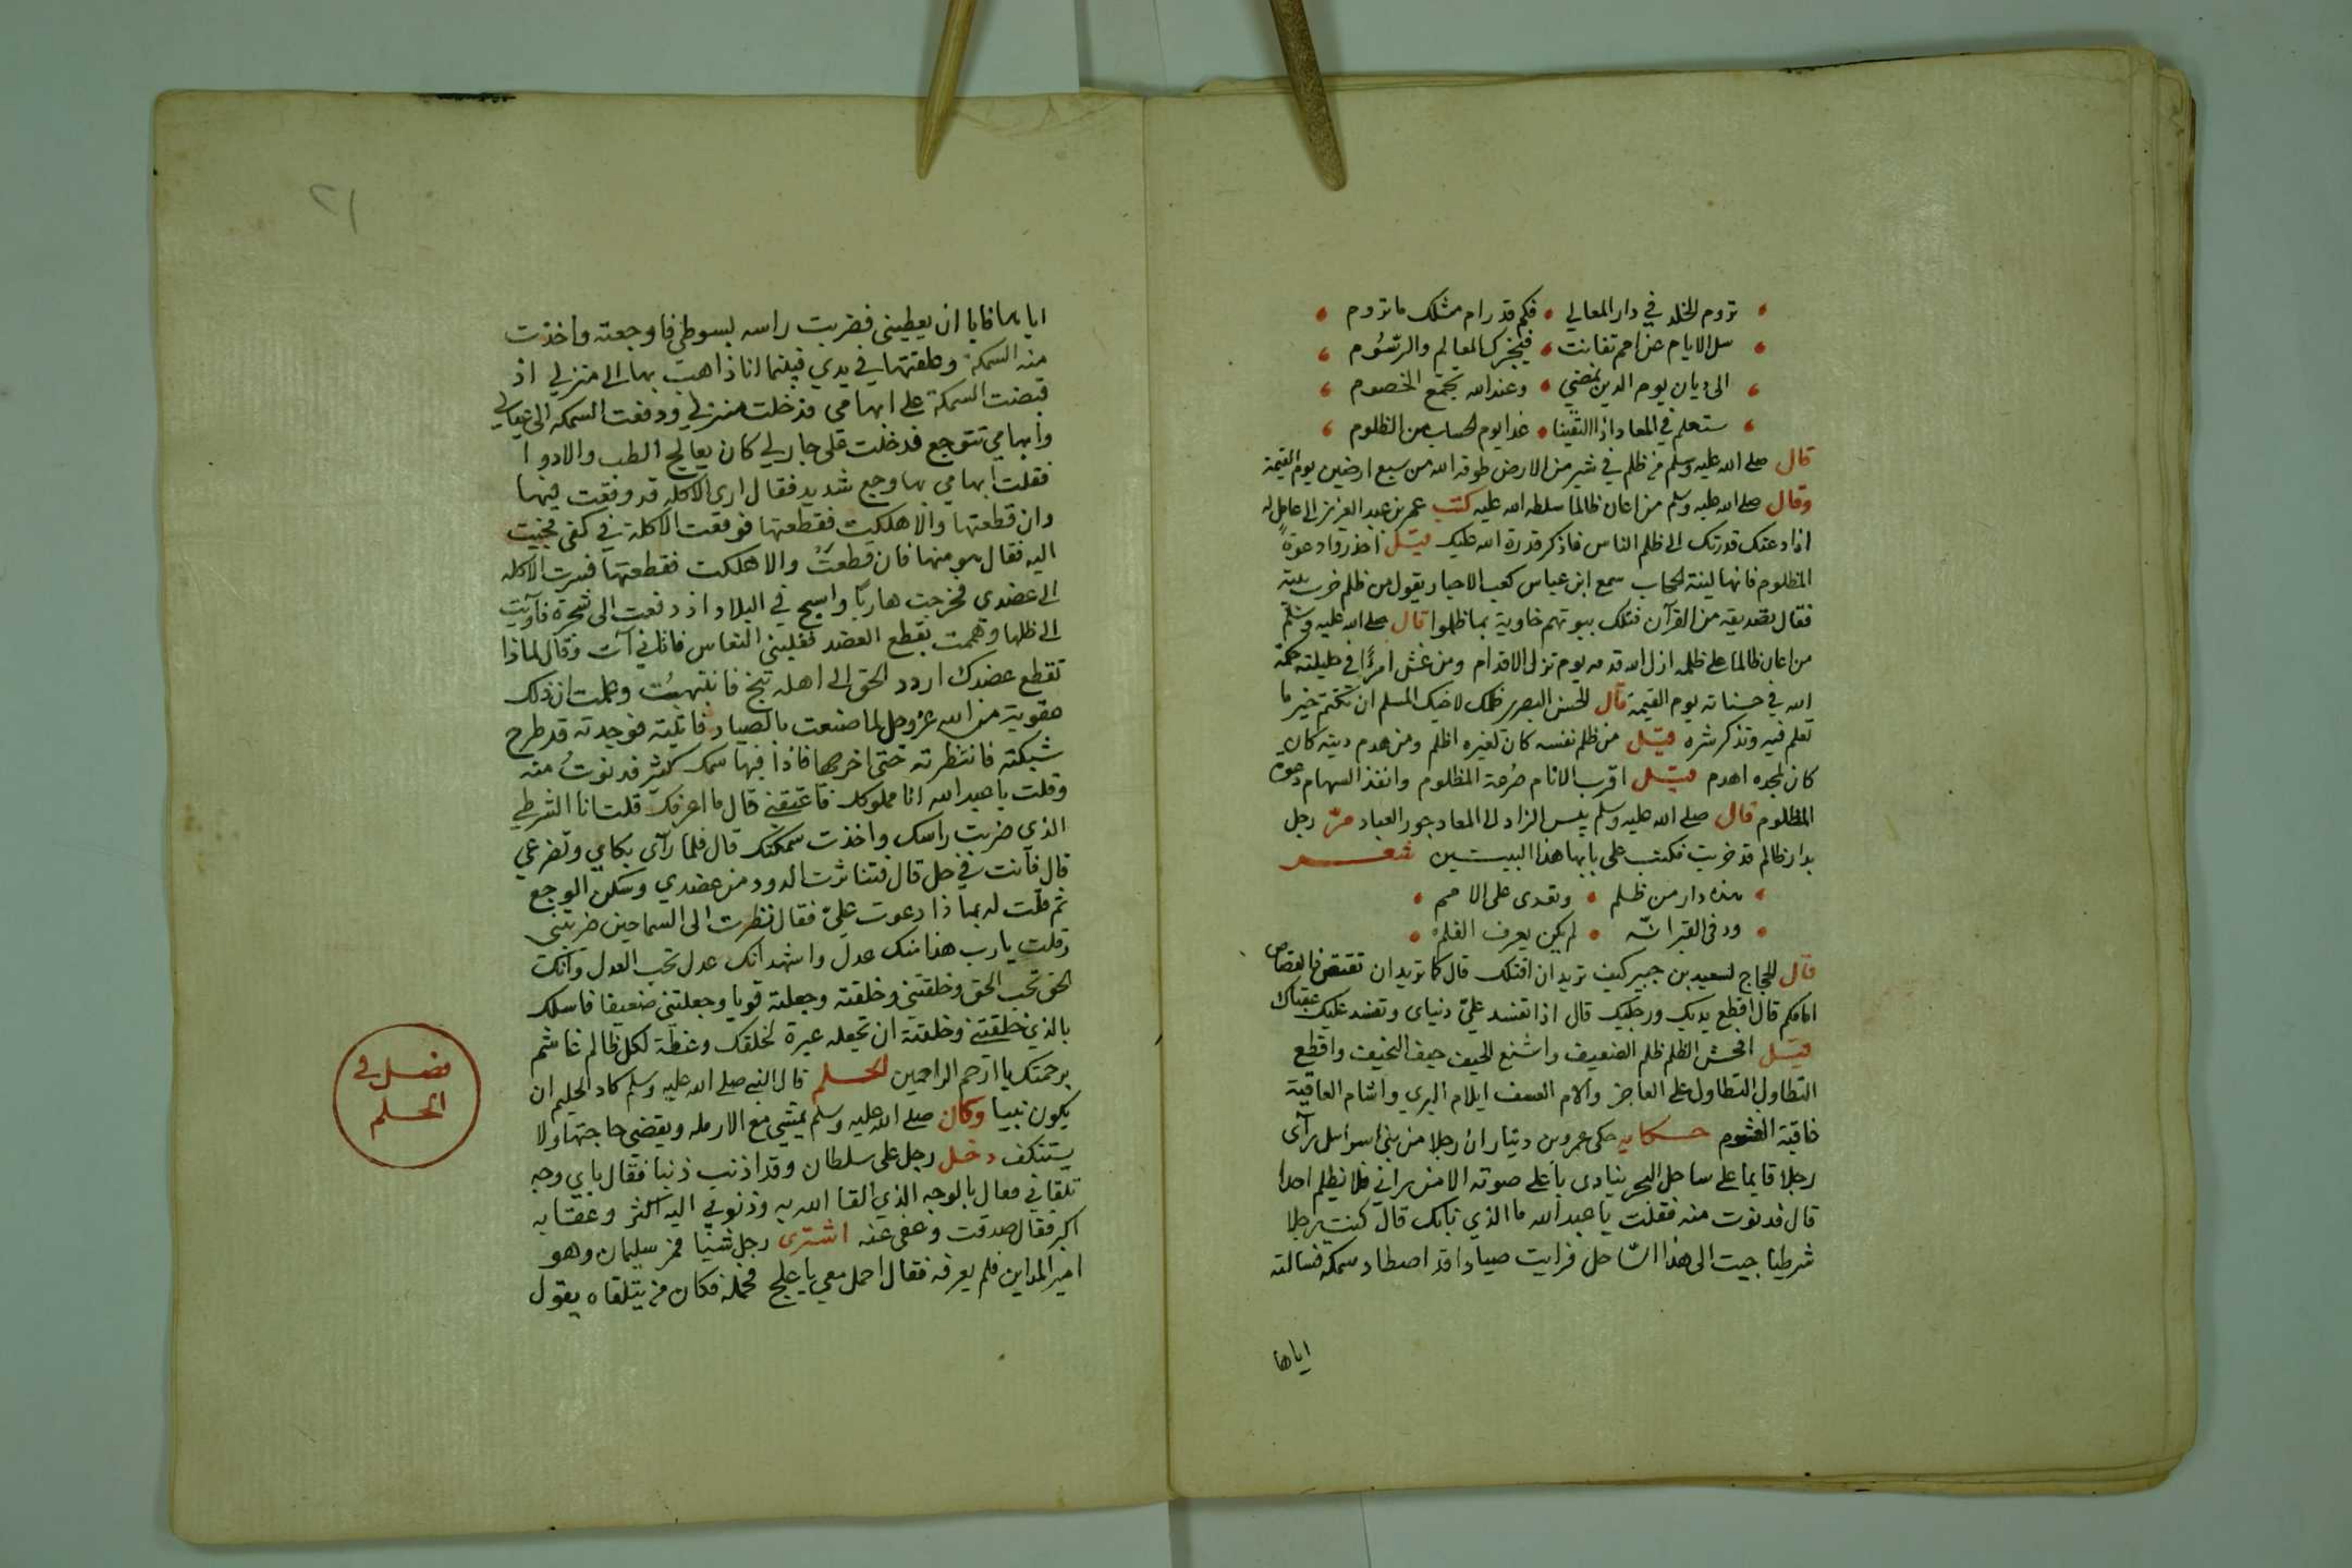 تروم الخلد في دار المعالي • فكم قد رام مثلك ما تروم
سل الايام عن امم تفانت • فيخبرك المعالم والرسُوم
الى ديان يوم الدين نمضي • وعند الله تجتمع الخصوم
ستعلم في المعاد اذا التقينا • غدا يوم الحساب من الظلوم
قال صلى الله عليه وسلم من ظلم في شبر من الارض طوقه الله من سبع ارضين يوم القيمة
وقال صلى الله عليه وسلم من اعان ظالما سلطه الله عليه كتب عمر بن عبد العزيز الى عامل له
اذا دعتك قدرتك الى ظلم الناس فاذكر قدرة الله عليك قيل احذروا دعوة
المظلوم فانها لينة الحجاب سمع ابن عباس كعب الاحبار يقول من ظلم خرب بيته
فقال تصديقه من القرآن فتلك بيوتهم خاوية بما ظلموا قال صلى الله عليه وسلم
من اعان ظالما على ظلمه ازل الله قدمه يوم تزل الاقدام ومن غش امرًا في حليلته حكمه
الله في حسناته يوم القيمة قال الحسن البصري ظلمك لاخيك المسلم ان تكتم خير ما
تعلم فيه وتذكر شره قيل من ظلم نفسه كان لغيره اظلم ومن هدم دينه كان
كان لمجده اهدم قيل اقرب الانام صُرعة المظلوم وانفذ السهام دعوة
المظلوم قال صلى الله عليه وسلم بيس الزاد الى المعاد جور العباد مرّ رجل
بدار ظالم قد خربت فكتب على بابها هذا البيتين شعر
هذه دار من ظلم • وتعدى على الامم
ودفى القبر انه • لم يكن يعرف الظلم
قال الحجاج لسعيد بن جبير كيف تريد ان اقتلك قال كما تريد ان تقتص فالقصاص
امامكم قال اقطع يديك ورجليك قال اذا تفسد عليّ دنياى وتفسد عليك عقباك
قيل افحش الظلم ظلم الضعيف واشنع الحيف حيف النحيف واقطع
التطاول التطاول على العاجز والام العسف ايلام البري واشام العاقبة
عاقبة الغشوم حكايه حكى عمرو بن دينار ان رجلا من بني اسرائيل رآى
رجلا قايما على ساحل البحر ينادى باعلى صوته الا من رآني فلا يظلم احدا
قال فدنوت منه فقلت يا عبد الله ما الذي نابك قال كنت رجلا
شرطيا جيت الى هذا الساحل فرايت صيادا قد اصطاد سمكه فسالته
اياها
٢١
اياها فابا ان يعطيني فضربت راسه بسوطي فاوجعته واخذت
منه السمكة وعلقتها في يدي فبينما انا ذاهب بها الى منزلي اذ
قبضت السمكة على ابهامي فدخلت منزلي ودفعت السمكه الى عيالي
وابهامي تتوجع فدخلت على جار لي كان يعالج الطب والادوا
فقلت ابهامي بها وجع شديد فقال ارى الاكله قد وقعت فيها
وان قطعتها والا هلكت فقطعتها فوقعت الاكلة في كفى فجيت
اليه فقال هو منها فان قطعتَ والا هلكت فقطعتها فسرت الاكله
الى عضدي فخرجت هاربًا واسيح في البلاد اذ دفعت الى شجرة فآويت
الى ظلها وهممت بقطع العضد فغلبني النعاس فاتاني آت وقال لماذا
تقطع عضدك اردد الحق الى اهله تنج فانتبهتُ وعلمت ان ذلك
عقوبة من الله عز وجل لما صنعت بالصياد فاتيته فوجدته قد طرح
شبكته فانتظرته حتى اخرجها فاذا فيها سمك كثير فدنوتُ منه
وقلت يا عبد الله انا مملوك لك فاعتقني قال ما اعرفك قلت انا الشرطي
الذي ضربت راسك واخذت سمكتك قال فلما رآى بكاي وتضرعي
قال فآنت في حل قال فتناثرت الدود من عضدي وسكن الوجع
ثم قلت له بماذا دعوت عليّ فقال نظرت الى السما حين ضربتني
وقلت يا رب هذا منك عدل واشهد انك عدل تحب العدل وآنك
الحق تحب الحق وخلقتني وخلقته وجعلته قويا وجعلتني ضعيفا فاسلك
بالذي خلقتني وخلقته ان تجعله عبرة لخلقك وعظة لكل ظالم غاشم
برحمتك يا ارحم الراحمين الحلم قال النبي صلى الله عليه وسلم كاد الحليم ان
يكون نبيا وكان صلى الله عليه وسلم يمشي مع الارمله ويقضي حاجتها ولا
يستنكف دخل رجل على سلطان وقد اذنب ذنبا فقال باي وجه
تلقاني فقال بالوجه الذي القا الله به وذنوبي اليه اكثر وعقابه
اكبر فقال صدقت وعفى عنه اشترى رجل شيا فمر سليمان وهو
امير المداين فلم يعرفه فقال احمل معي يا علج فحمله فكان من يتلقاه يقول
فصل في
الحلم